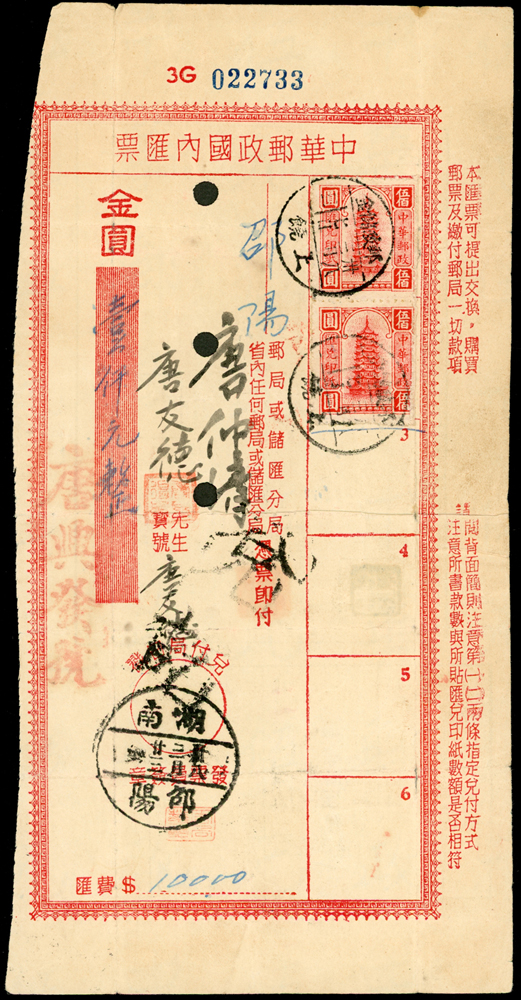 3G 022733
中華郵政國內匯票
本匯票可提出交換，購買
郵票及繳付郵局一切款項
請閱背面簡則注意第一（二）兩條指定兌付方式
注意所書款數與所貼匯兌印紙數額是否相符
伍佰 中華郵政 伍佰
圓 匯兌印紙 圓
上饒
伍佰 中華郵政 伍佰
圓 圓
3
4
5
6
邵陽
郵局或儲匯分局
省內任何郵局或儲匯分局
憑票即付
唐仲
唐友德
先生
寶號
金圓
壹仟元整
唐興發號
兌付局
湖南
邵陽
匯費 $ 10000